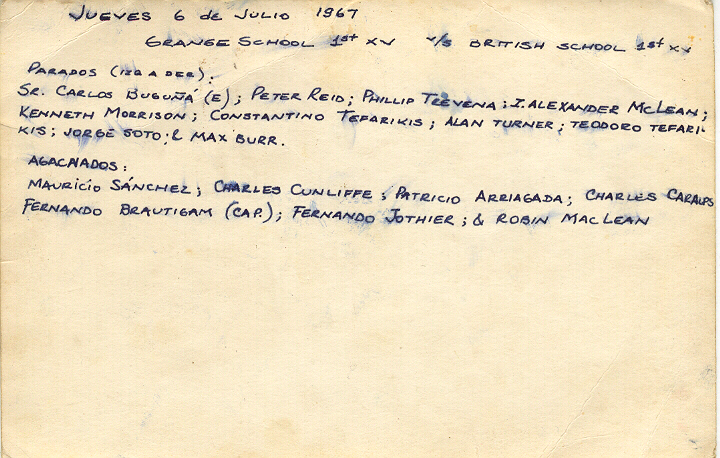 JUEVES 6 de JULIO 1967
GRANGE SCHOOL 1st XV v/s BRITISH SCHOOL 1st XV
PARADOS (IZQ A DER):
Sr. CARLOS BUGUÑÁ (E); PETER REID; PHILLIP TREVENA; I. ALEXANDER McLEAN;
KENNETH MORRISON; CONSTANTINO TEFARIKIS; ALAN TURNER; TEODORO TEFARI-
KIS; JORGE SOTO; & MAX BURR.
AGACHADOS:
MAURICIO SÁNCHEZ; CHARLES CUNLIFFE; PATRICIO ARRIAGADA; CHARLES CARALPS
FERNANDO BRAUTIGAM (CAP.); FERNANDO JOTHIER; & ROBIN MACLEAN